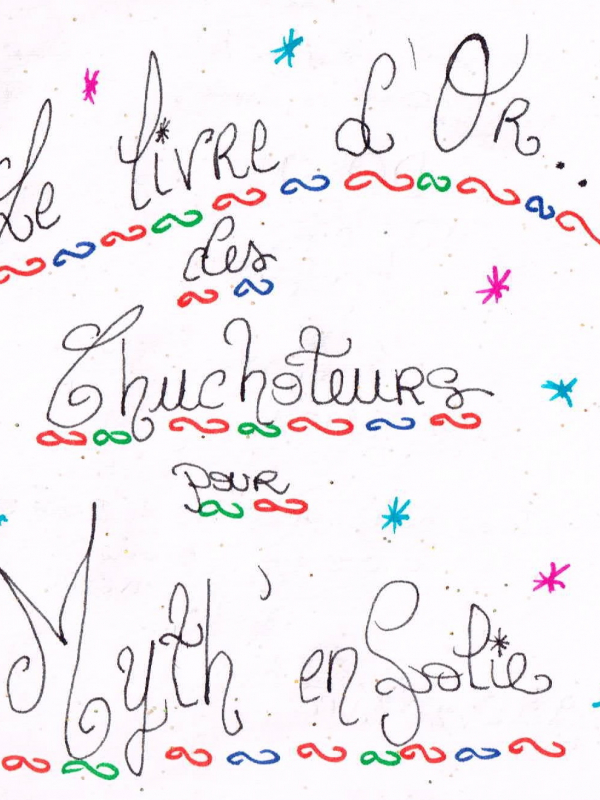 Le livRe d'OR...
des
Chuchoteurs
pour
Myth' en folie